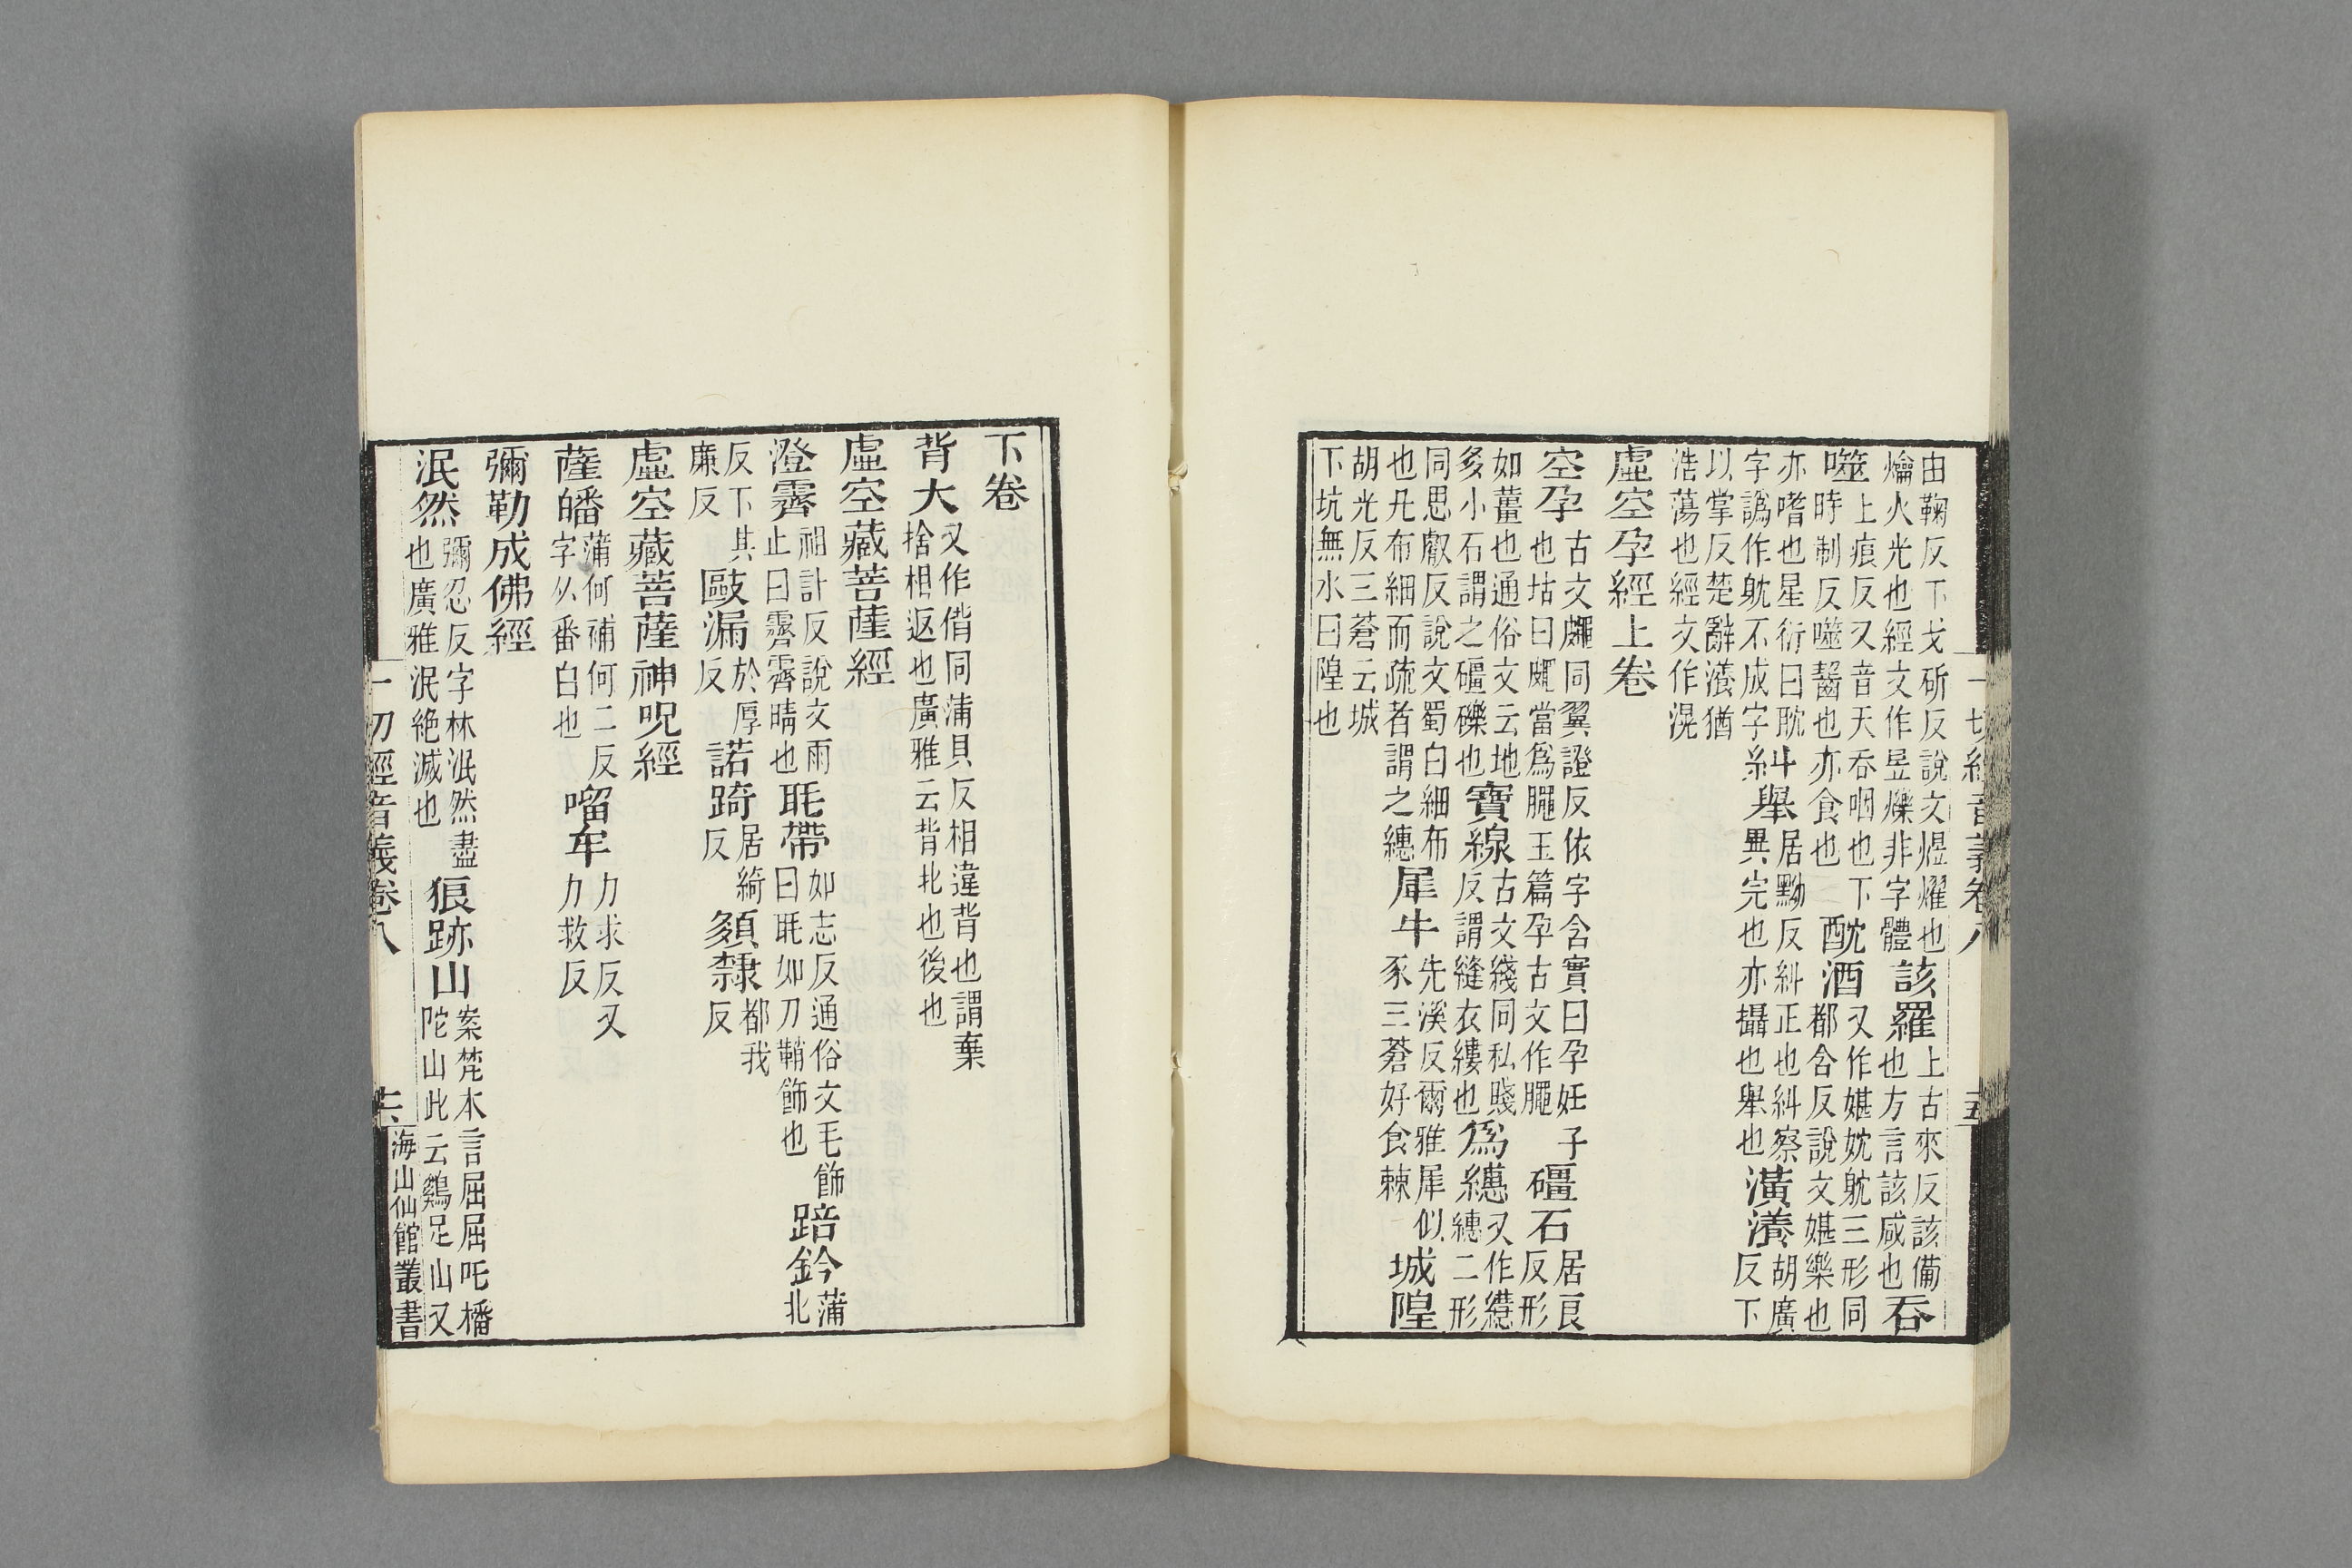 由鞠反下戈斫反說文煜燿也爚火光也經文作昱爍非字體該羅上古來反該備也方言該咸也吞
噬上痕反又音天吞咽也下時制反噬齧也亦食也酖酒又作媅妉躭三形同都含反說文媅樂也
亦嗜也星衍曰耽字譌作躭不成字糾舉居黝反糾正也糾察異完也亦攝也舉也潢瀁胡廣反下
以掌反楚辭瀁猶浩蕩也經文作滉
虛空孕經上卷
空孕古文同翼證反依字含實曰孕妊子也玷曰當爲玉篇孕古文作礓石居良反形
如薑也通俗文云地多小石謂之礓礫也寶線古文綫同私賤反謂縫衣縷也爲繐又作繐二形
同思叡反說文蜀白細布也凡布細而疏者謂之繐犀牛先溪反爾雅犀似豕三蒼好食棘城隍
胡光反三蒼云城下坑無水曰隍也
一切經音義卷八
十五
下卷
背大又作偝同蒲貝反相違背也謂棄捨相返也廣雅云背北也後也
虛空藏菩薩經
澄霽祖計反說文雨止曰霽霽晴也毦帶如志反通俗文毛飾曰毦如刀鞘飾也踣鈐蒲北
反下其廉反毆漏於厚反諾踦居綺反䫂隸都我反
虛空藏菩薩神呪經
薩皤蒲何補何二反字从番白也㗰牟力求反又力救反
彌勒成佛經
泯然彌忍反字林泯然盡也廣雅泯絕滅也狼跡山案梵本言屈屈吒橎陀山此云鷄足山又
一切經音義卷八
十六
海山仙館叢書